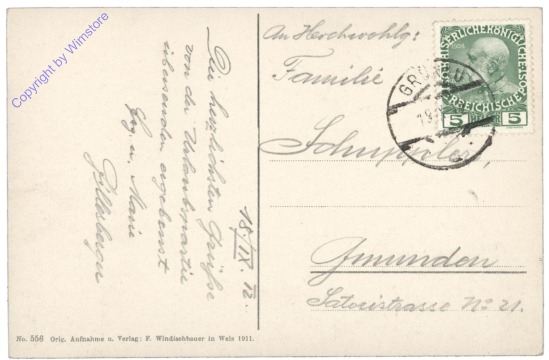 Copyright by Wimstore
Die herzlichsten Grüße
von der Urlaubspartie
übersenden ergebenst
u. Marie
18./IX. 12.
An Hochwohlg:
Familie
Gmunden
Satoristrasse No 21.
KAISERLICHE KÖNIGLICHE
1908
5 5
GRÜNAU
No. 556 Orig. Aufnahme u. Verlag: F. Windischbauer in Wels 1911.